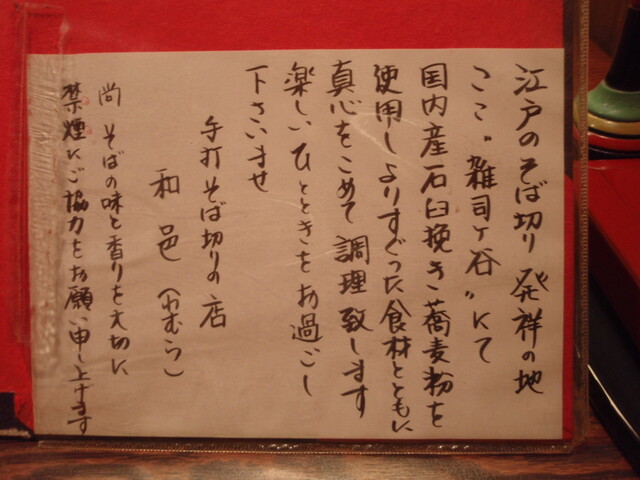 江戸のそば切り発祥の地
ここ〝雑司ヶ谷〟にて
国内産石臼挽き蕎麦粉を
使用しよりすぐった食材とともに
真心をこめて調理致します
楽しいひとときをお過ごし
下さいませ
手打そば切りの店
和邑（わむら）
尚そばの味と香りを大切に
禁煙にご協力をお願い申し上げます